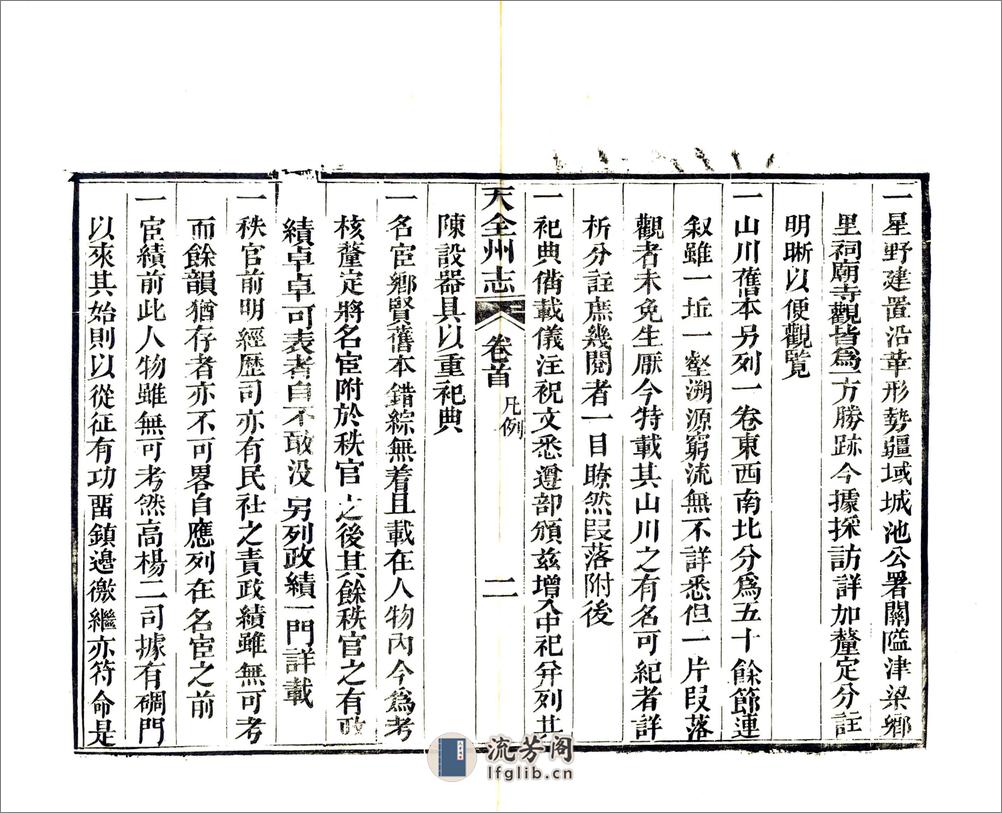 一星野建置沿革形勢疆域城池公署關隘津梁鄉
里祠廟寺觀皆爲一方勝跡今據採訪詳加釐定分註
明晰以便觀覽
一山川舊本另列一卷東西南北分爲五十餘節連
叙雖一坵一壑溯源窮流無不詳悉但一片段落
觀者未免生厭今特載其山川之有名可紀者詳
析分註庶幾閱者一目瞭然段落附後
一祀典備載儀注祝文悉遵部頒兹增入中祀并列其
天全州志 卷首 凡例 二
陳設器具以重祀典
一名宦鄉賢舊本錯綜無着且載在人物内今爲考
核釐定將名宦附於秩官之後其餘秩官之有政
績卓卓可表者自不敢没另列政績一門詳載
一秩官前明經歷司亦有民社之責政績雖無可考
而餘韻猶存者亦不可畧自應列在名宦之前
一宦績前此人物雖無可考然高楊二司據有碉門
以來其始則以從征有功畱鎮邊徼繼亦符命是
流芳阁
lfglib.cn